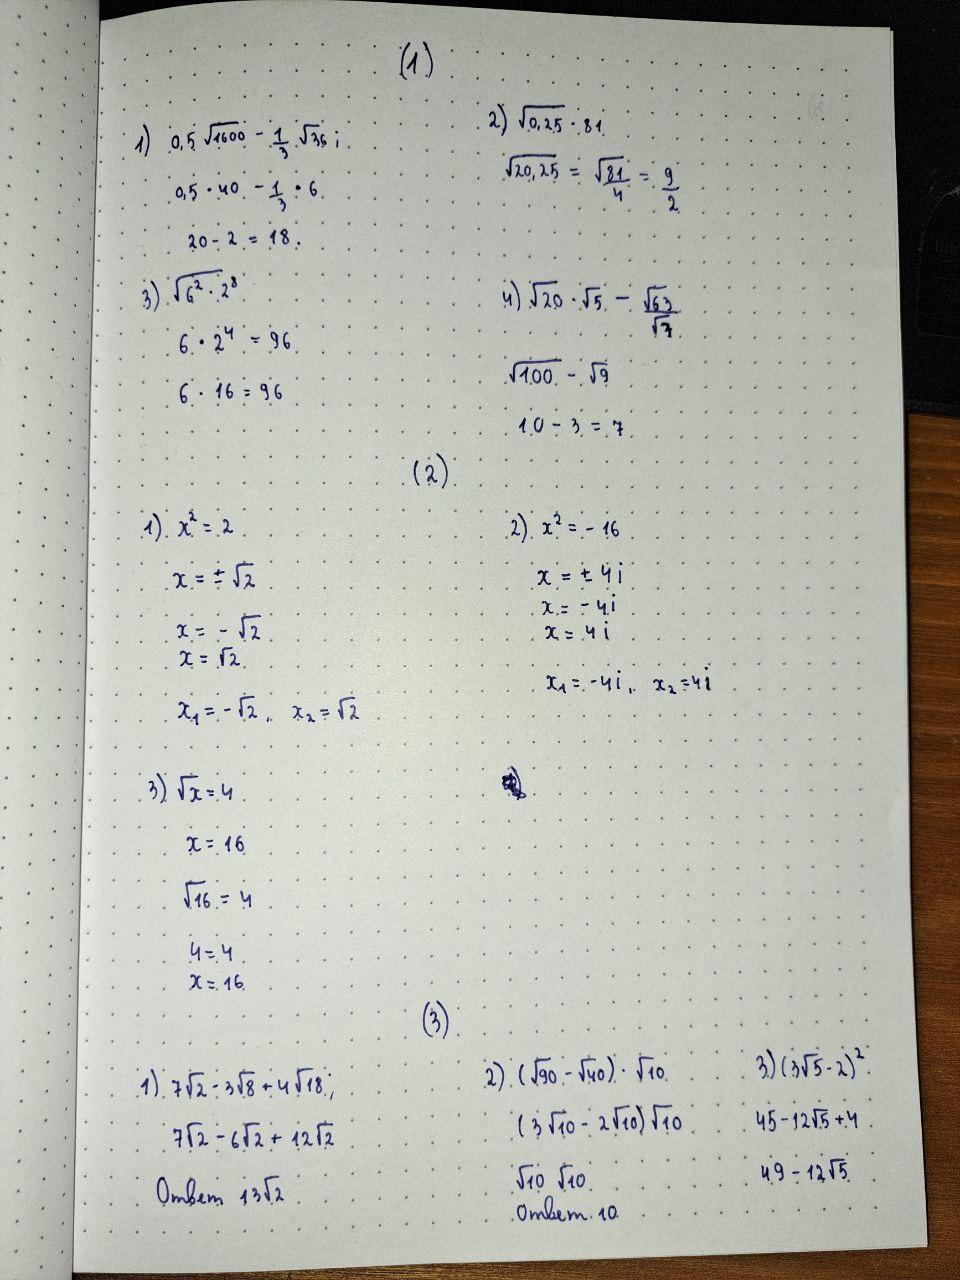 (1)
1) 0,5 √1600 - 1/3 √36;
0,5 · 40 - 1/3 · 6
20 - 2 = 18.
2) √0,25 · 81
√20,25 = √81/4 = 9/2
3) √6² · 2⁸
6 · 2⁴ = 96
6 · 16 = 96
4) √20 · √5 - √63/√7
√100 - √9
10 - 3 = 7
(2)
1) x² = 2
x = ± √2
x = - √2
x = √2
x₁ = -√2, x₂ = √2
2) x² = - 16
x = ± 4i
x = - 4i
x = 4i
x₁ = -4i, x₂ = 4i
3) √x = 4
x = 16
√16 = 4
4 = 4
x = 16
(3)
1) 7√2 - 3√8 + 4√18;
7√2 - 6√2 + 12√2
Ответ 13√2
2) (√90 - √40) · √10
(3√10 - 2√10)√10
√10 √10
Ответ 10
3) (3√5 - 2)²
45 - 12√5 + 4
49 - 12√5